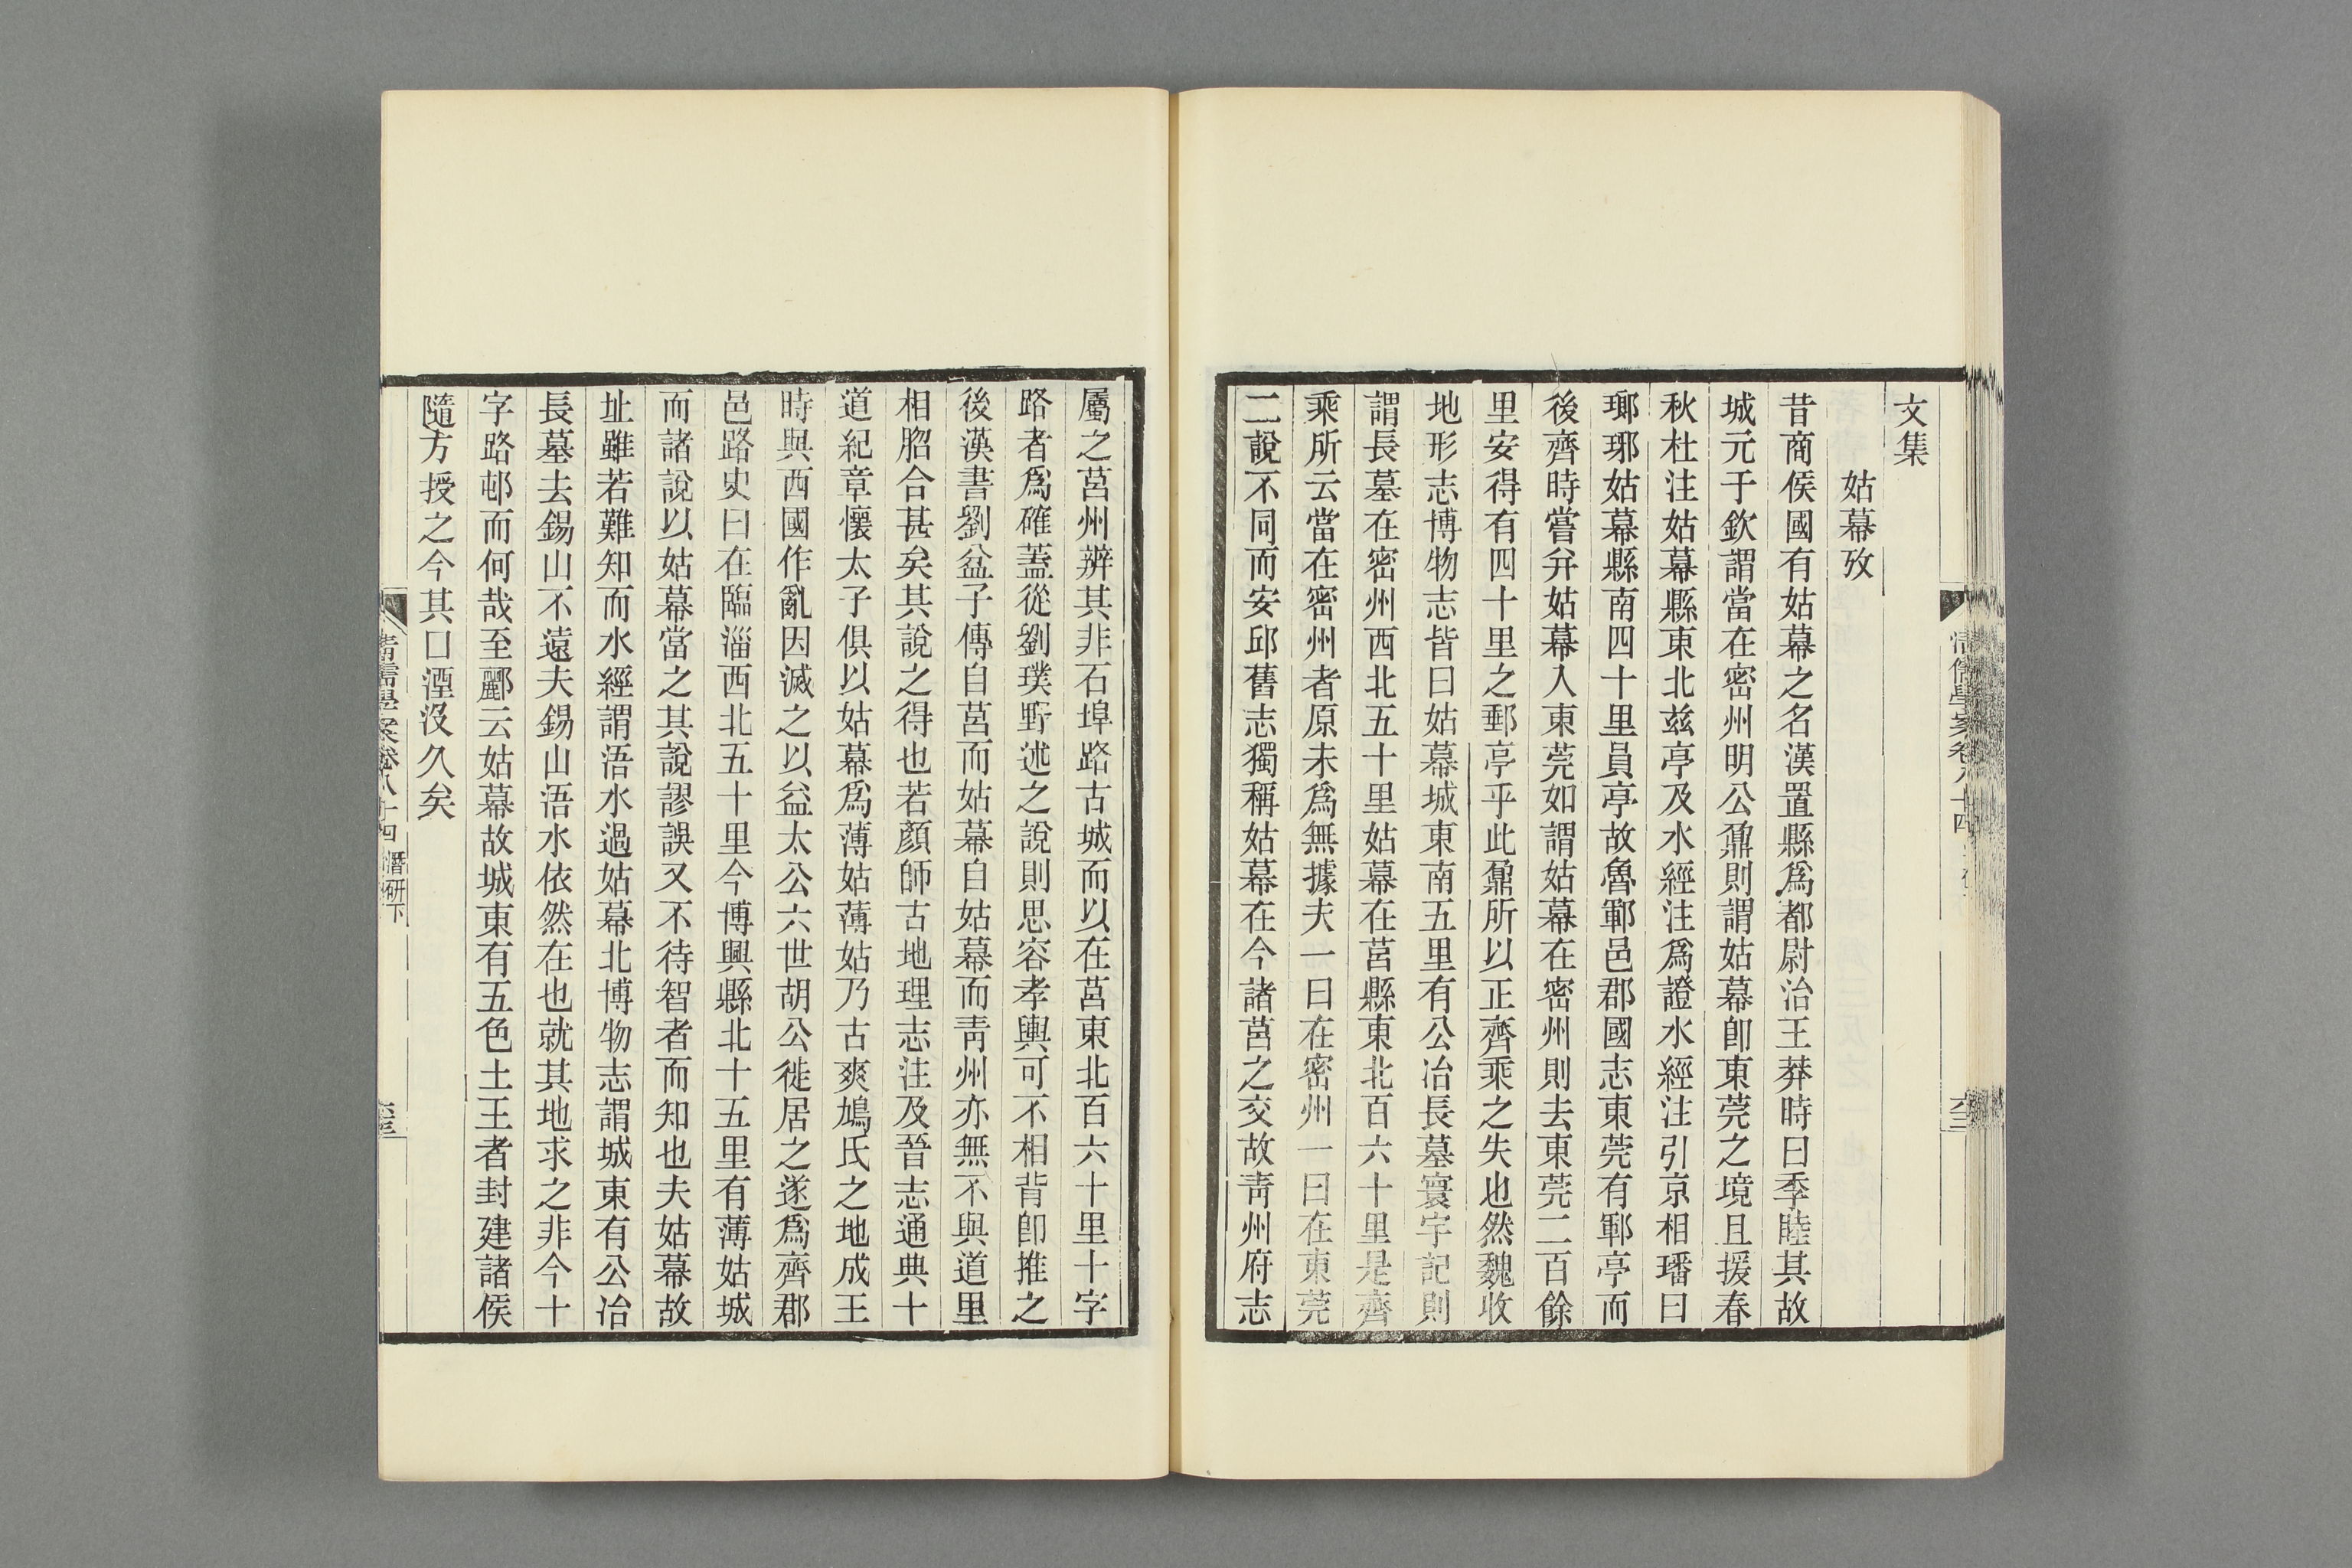 文集
姑幕攷
昔商侯國有姑幕之名漢置縣爲都尉治王莽時曰季睦其故
城元于欽謂當在密州明公鼐則謂姑幕卽東莞之境且援春
秋杜注姑幕縣東北兹亭及水經注爲證水經注引京相璠曰
瑯琊姑幕縣南四十里員亭故魯鄆邑郡國志東莞有鄆亭而
後齊時嘗弁姑幕入東莞如謂姑幕在密州則去東莞二百餘
里安得有四十里之郵亭乎此鼐所以正齊乘之失也然魏收
地形志博物志皆曰姑幕城東南五里有公冶長墓寰宇記則
謂長墓在密州西北五十里姑幕在莒縣東北百六十里是齊
乘所云當在密州者原未爲無據夫一曰在密州一曰在東莞
二說不同而安邱舊志獨稱姑幕在今諸莒之交故靑州府志
屬之莒州辨其非石埠路古城而以在莒東北百六十里十字
路者爲確蓋從劉璞野述之說則思容孝輿可不相背卽推之
後漢書劉盆子傳自莒而姑幕自姑幕而靑州亦無不與道里
相脗合甚矣其說之得也若顏師古地理志注及晉志通典十
道紀章懷太子俱以姑幕爲薄姑薄姑乃古爽鳩氏之地成王
時與西國作亂因滅之以益太公六世胡公徙居之遂爲齊郡
邑路史曰在臨淄西北五十里今博興縣北十五里有薄姑城
而諸說以姑幕當之其說謬誤又不待智者而知也夫姑幕故
址雖若難知而水經謂浯水過姑幕北博物志謂城東有公冶
長墓去錫山不遠夫錫山浯水依然在也就其地求之非今十
字路邨而何哉至酈云姑幕故城東有五色土王者封建諸侯
隨方授之今其口湮沒久矣
清儒學案卷八十四 潛研下